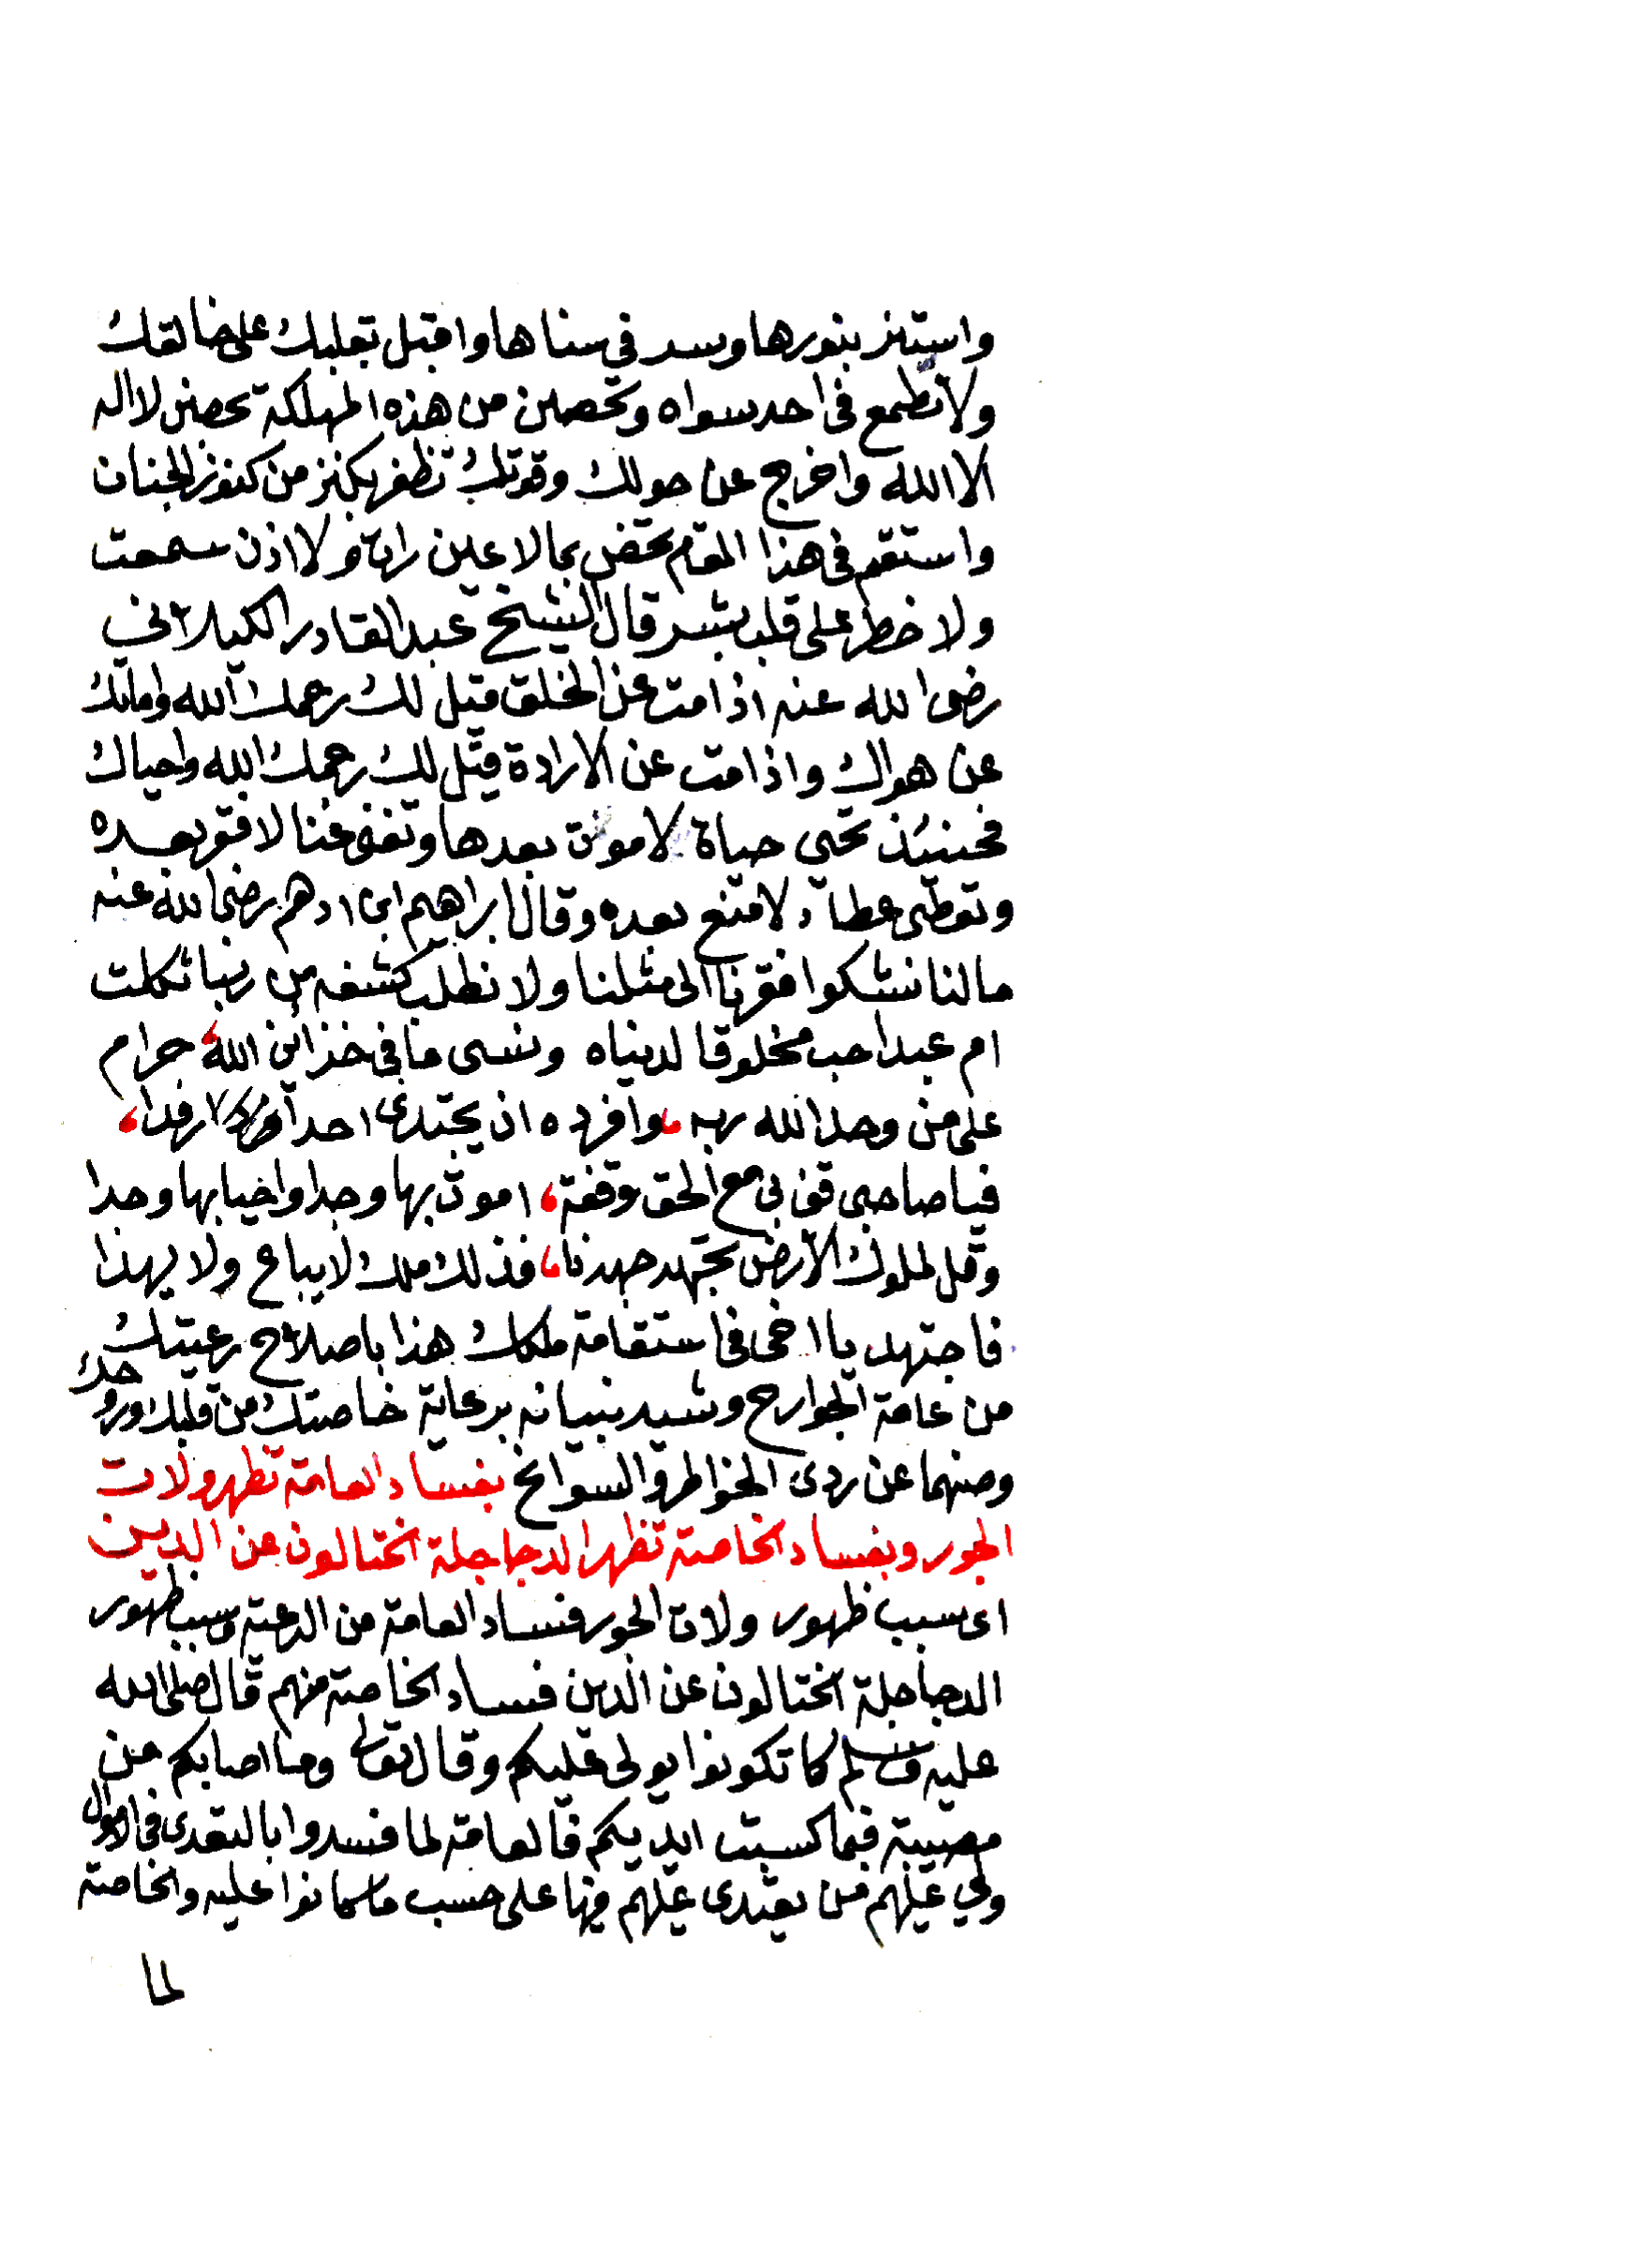 واستنر بنورها وسد في سناها واقبل بقلبك على خالقك
ولا تطمع في احد سواه وتحصن من هذه المهلكة بحصن لا اله
الا الله واخرج عن حولك وقوتك تظفر بكنز من كنوز الجنان
واستقم في هذا المقام تحض بما لا عين رات ولا اذن سمعت
ولا خطر على قلب بشر قال الشيخ عبد القادر الكيلاني
رضي الله عنه اذا مت عن الخلق قيل لك رحمك الله واماتك
عن هواك واذا مت عن الارادة قيل لك رحمك الله واحياك
فحينئذ تحيى حياة لا موت بعدها وتغنى غنا لا فقر بعده
وتعطى عطاء لا منع بعده وقال ابراهيم ابن ادهم رضي الله عنه
مالنا نشكوا فقرنا الى مثلنا ولا نطلب كشفه من ربنا ثكلت
ام عبدا حب مخلوقا لدنياه ونسى ما في خزائن الله حرام
على من وحد الله ربه، وافرده ان يجتدى احدا رفدا،
فيا صاحبى قف بى مع الحق وقفة، اموت بها وجدا واحيا بها وجدا
وقل لملوك الارض تجتهد جهدنا، فذلك ملك لا يباع ولا يهدا
فاجتهد يا اخى في استقامة ملكك هذا باصلاح رعيتك
من عامة الجوارح وشيد بنيانه برعاية خاصتك من قلبك وروحك
وصنهما عن ردى الخواطر والسوانح بفساد العامة تظهر ولات
الجور وبفساد الخاصة تظهر الدجاجلة الختالون عن الدين
اى سبب ظهور ولات الجور فساد العامة من الرعية وسبب ظهور
الدجاجلة الختالون عن الدين فساد الخاصة منهم قال صلى الله
عليه وسلم كما تكونوا يولى عليكم وقال تعالى وما اصابكم من
مصيبة فبما كسبت ايديكم فالعامة لما فسدوا بالتعدى في الاموال
ولي عليهم من يعتدى عليهم فيها على حسب ما كانوا عليه والخاصة
لما